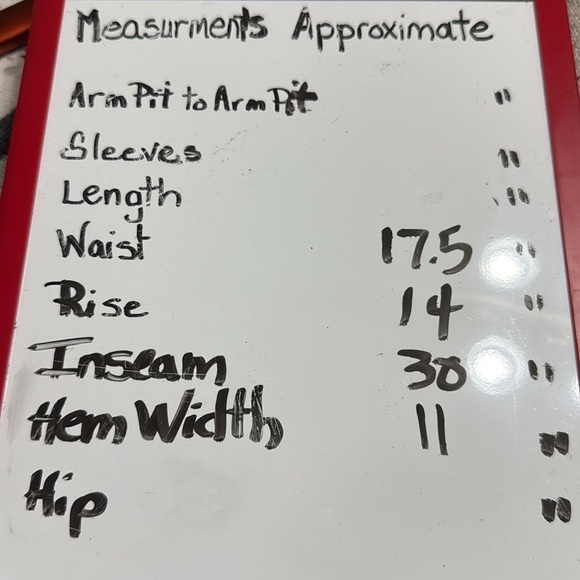 Measurments Approximate
Arm Pit to Arm Pit "
Sleeves "
Length "
Waist 17.5 "
Rise 14 "
Inseam 30 "
Hem Width 11 "
Hip "